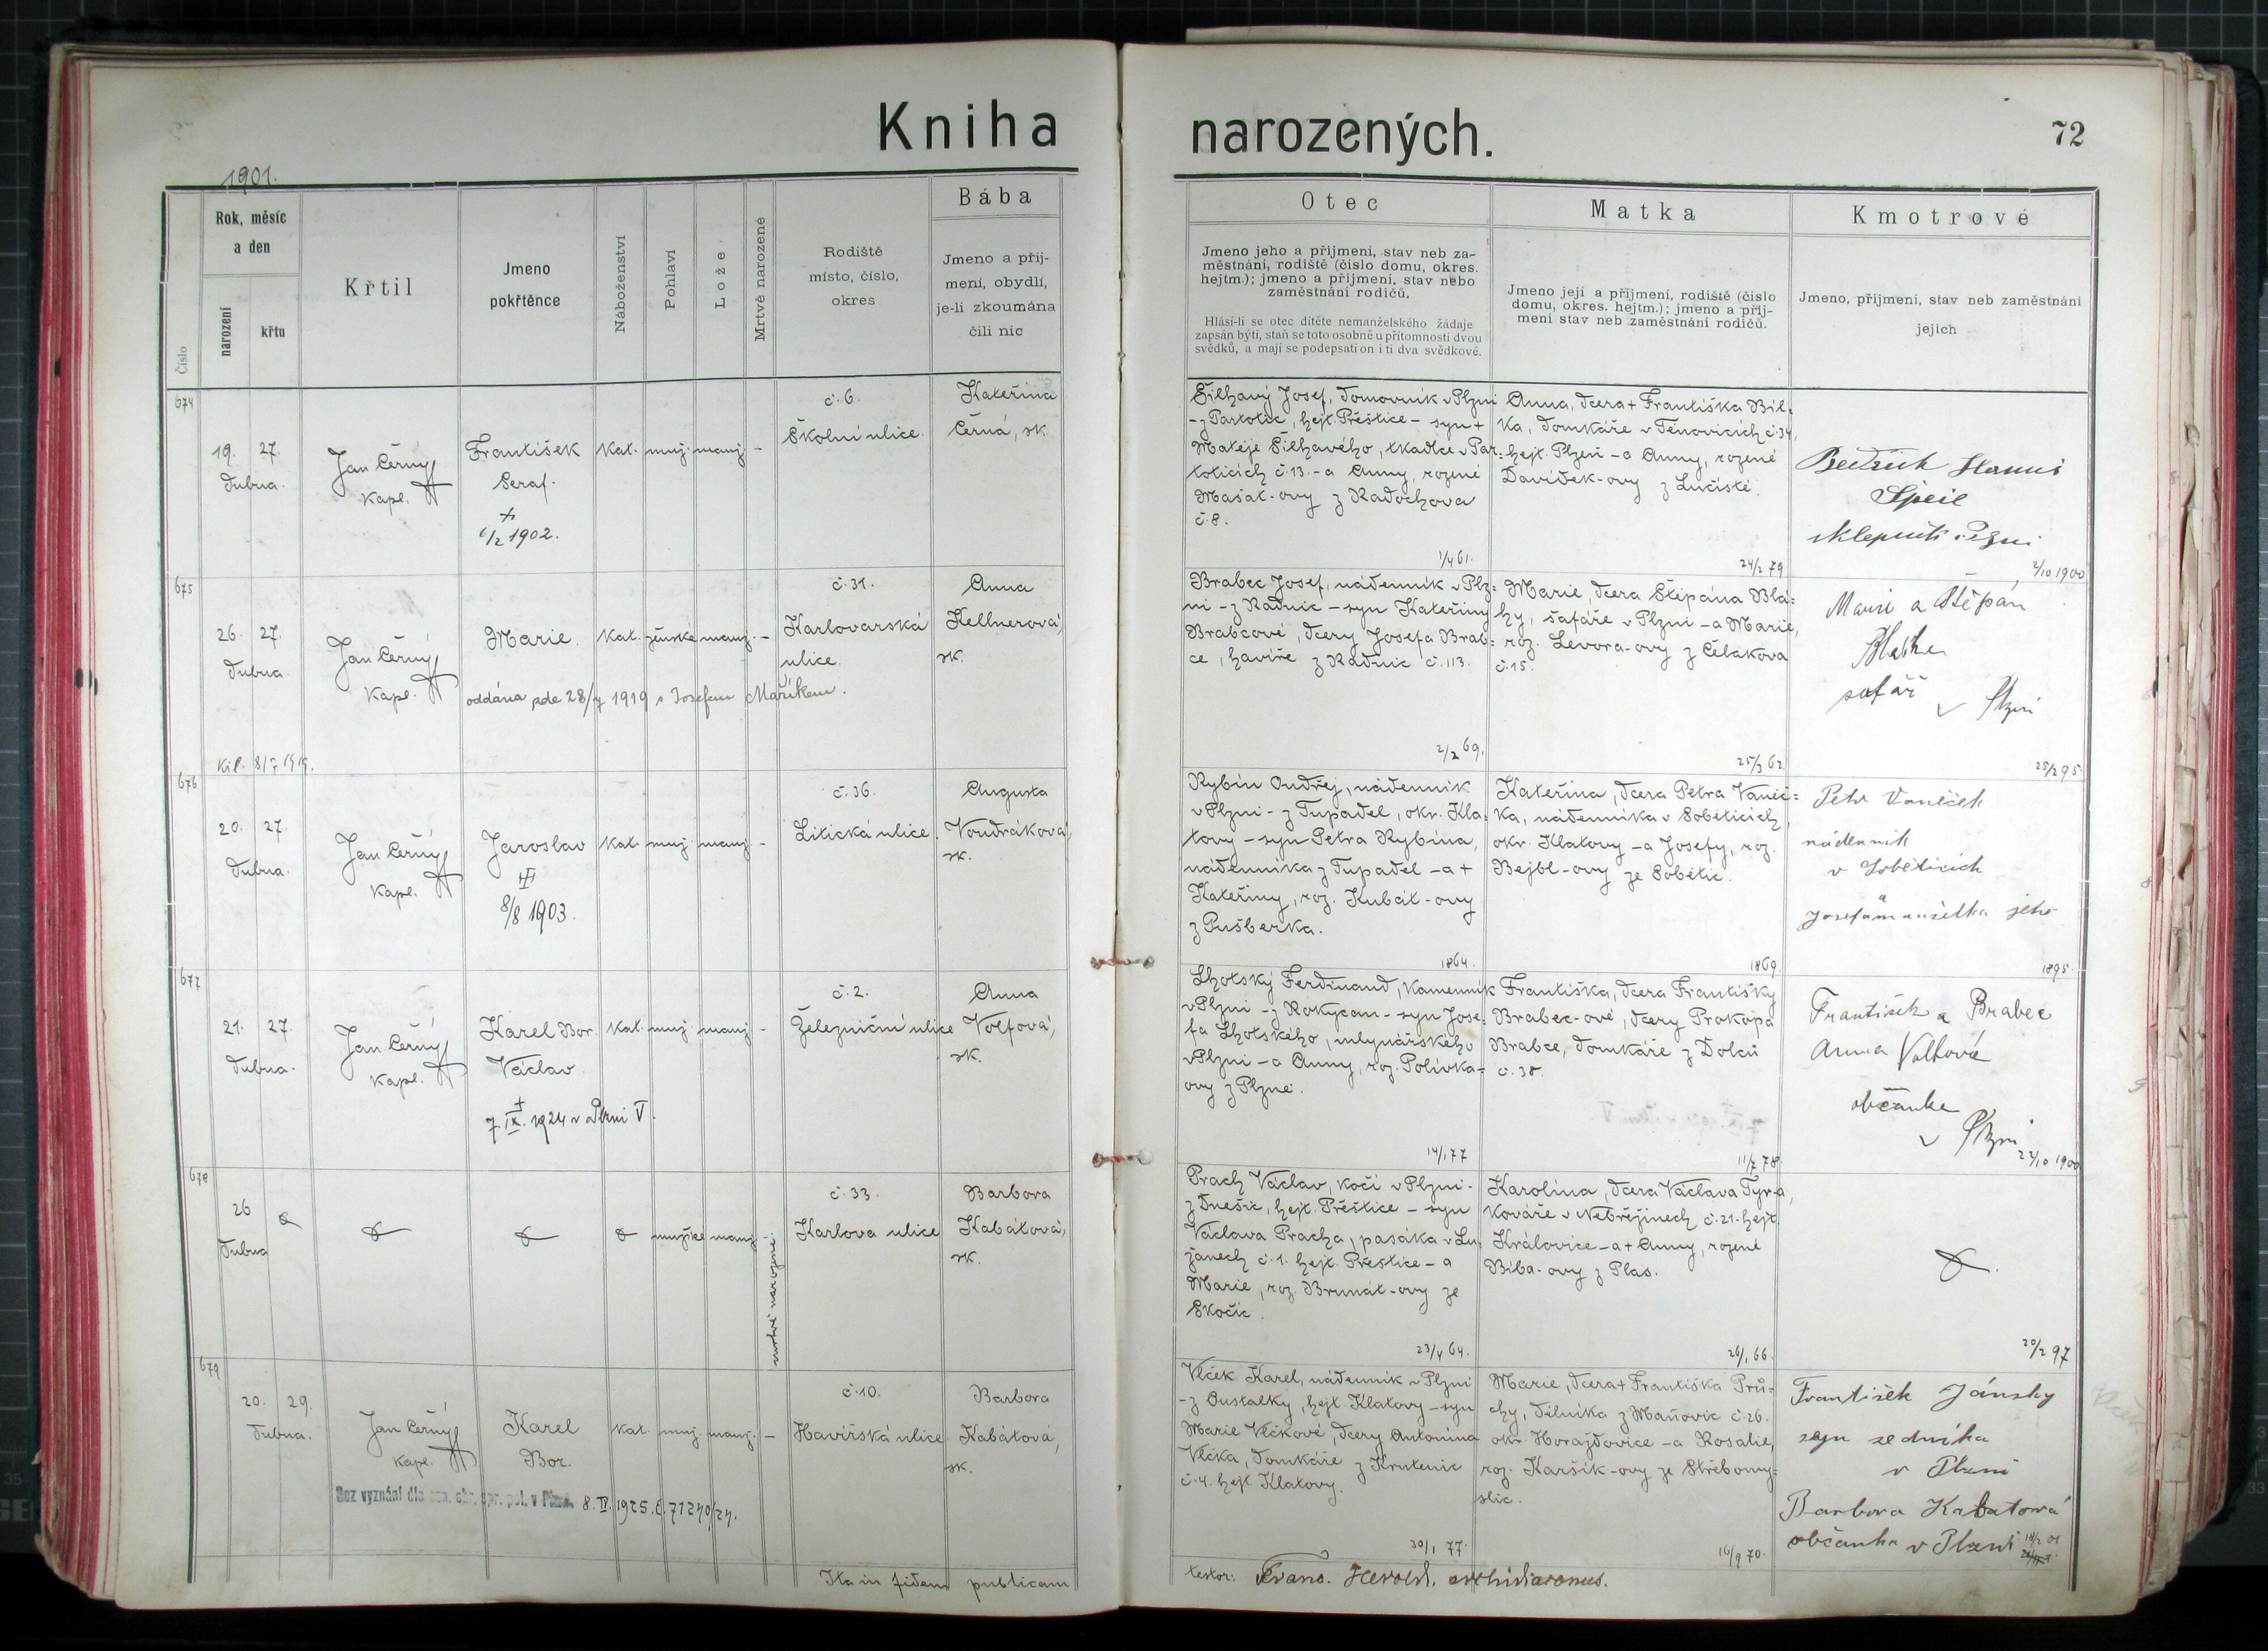 Kniha narozených.
72
1901.
Číslo
Rok, měsíc
a den
narození
křtu
Křtil
Jmeno
pokřtěnce
Náboženství
Pohlaví
Lože
Mrtvě narozené
Rodiště
místo, číslo,
okres
Bába
Jmeno a příj-
mení, obydlí,
je-li zkoumána
čili nic
Otec
Jmeno jeho a příjmení, stav neb za-
městnání, rodiště (číslo domu, okres.
hejtm.); jmeno a příjmení, stav nebo
zaměstnání rodičů.
Hlásí-li se otec dítěte nemanželského žádaje
zapsán býti, staň se toto osobně u přítomnosti dvou
svědků, a mají se podepsati on i ti dva svědkové.
Matka
Jmeno její a příjmení, rodiště (číslo
domu, okres. hejtm.); jmeno a příj-
mení stav neb zaměstnání rodičů.
Kmotrové
Jmeno, příjmení, stav neb zaměstnání
jejich
674
19. 27.
dubna.
Jan Černý
kapl.
František
Seraf.
+
6/2 1902.
kat. muž. manž. -
č. 6.
Školní ulice.
Kateřina
Černá, zk.
Šilhavý Josef, domovník v Plzni
- z Partoltic, hejt. Přeštice - syn +
Matěje Šilhavého, tkadlce v Par-
tolticích č. 13. - a Anny, rozené
Mašat-ovy z Radochova
č. 8.
1/4 61.
Anna, dcera + Františka Bíl-
ka, domkáře v Těnovicích č. 34,
hejt. Plzeň - a Anny, rozené
Davídek-ovy z Lučiště.
24/2 79
Bedřich Hanuš
Špeil
sklepník v Plzni
2/10 1900
675
26. 27.
dubna
Jan Černý
kapl.
Marie.
kat. ženské manž. -
oddána zde 28/7 1919 s Josefem Maříkem.
č. 31.
Karlovarská
ulice.
Anna
Kellnerová,
zk.
Brabec Josef, nádenník v Plz-
ni - z Radnic - syn Kateřiny
Brabcové, dcery Josefa Brab-
ce, havíře z Radnic č. 113.
2/2 69.
Marie, dcera Štěpána Blá-
hy, šafáře v Plzni - a Marie,
roz. Levora-ovy z Čelakova
č. 15.
25/3 62.
Marie a Štěpán
Bláha
šafář
v Plzni
25/2 95.
8/7 1919.
676
20. 27.
dubna.
Jan Černý
kapl.
Jaroslav
8/8 1903.
kat. muž. manž. -
č. 36.
Litická ulice.
Augusta
Voudráková,
zk.
Rybín Ondřej, nádenník
v Plzni - z Tupadel, okr. Kla-
tovy - syn Petra Rybína,
nádenníka z Tupadel - a +
Kateřiny, roz. Kubát-ovy
z Pušberka.
1864.
Kateřina, dcera Petra Vaníč-
ka, nádenníka v Soběticích,
okr. Klatovy - a Josefy, roz.
Bejbl-ovy ze Sobětic.
1869.
Petr Vaníček
nádenník
v Soběticích
a
Josefa manželka jeho
1895.
677
21. 27.
dubna.
Jan Černý
kapl.
Karel Bor.
Václav
+
7. IX. 1924 v Plzni V.
kat. muž. manž. -
č. 2.
Železniční ulice
Anna
Volfová,
zk.
Lhotský Ferdinand, kamenník
v Plzni - z Rokycan - syn Jose-
fa Lhotského, mlynářského
v Plzni - a Anny, roz. Polívka-
ovy z Plzně.
14/1 77
Františka, dcera Františky
Brabec-ové, dcery Prokopa
Brabce, domkáře z Dolců
č. 38.
11/7 78.
František a Brabec
Anna Volfová
občanka
v Plzni
22/10 1900
678
26
dubna
mužské manž.
mrtvě narozené
č. 33.
Karlova ulice
Barbora
Kabátová,
zk.
Prach Václav, kočí v Plzni -
z Dnešic, hejt. Přeštice - syn
Václava Pracha, pasáka v Lu-
žanech č. 1. hejt. Přeštice - a
Marie, roz. Brunát-ovy ze
Skočic.
23/4 64.
Karolina, dcera Václava Tyr-a,
kováře v Nebřežinech č. 21. hejt.
Kralovice - a + Anny, rozené
Bíba-ovy z Plas.
26/1 66.
20/2 97
679
20. 29.
dubna.
Jan Černý
kapl.
Karel
Bor.
kat. muž. manž. -
Bez vyznání dle 8. IV. 1925. č. 71240/24.
č. 10.
Havířská ulice
Barbora
Kabátová,
zk.
Vlček Karel, nádenník v Plzni
- z Oustalky, hejt. Klatovy - syn
Marie Vlčkové, dcery Antonína
Vlčka, domkáře z Krutenic
č. 4. hejt. Klatovy.
30/1 77.
Marie, dcera + Františka Prů-
chy, dělníka z Maňovic č. 26.
okr. Horažďovice - a Rosalie,
roz. Karšík-ovy ze Střebomy-
slic.
16/9 70.
František Jánský
syn zedníka
v Plzni
Barbora Kabatová
občanka v Plzni
Ita in fidem publicam
testor: Franc. Herold, archidiaconus.